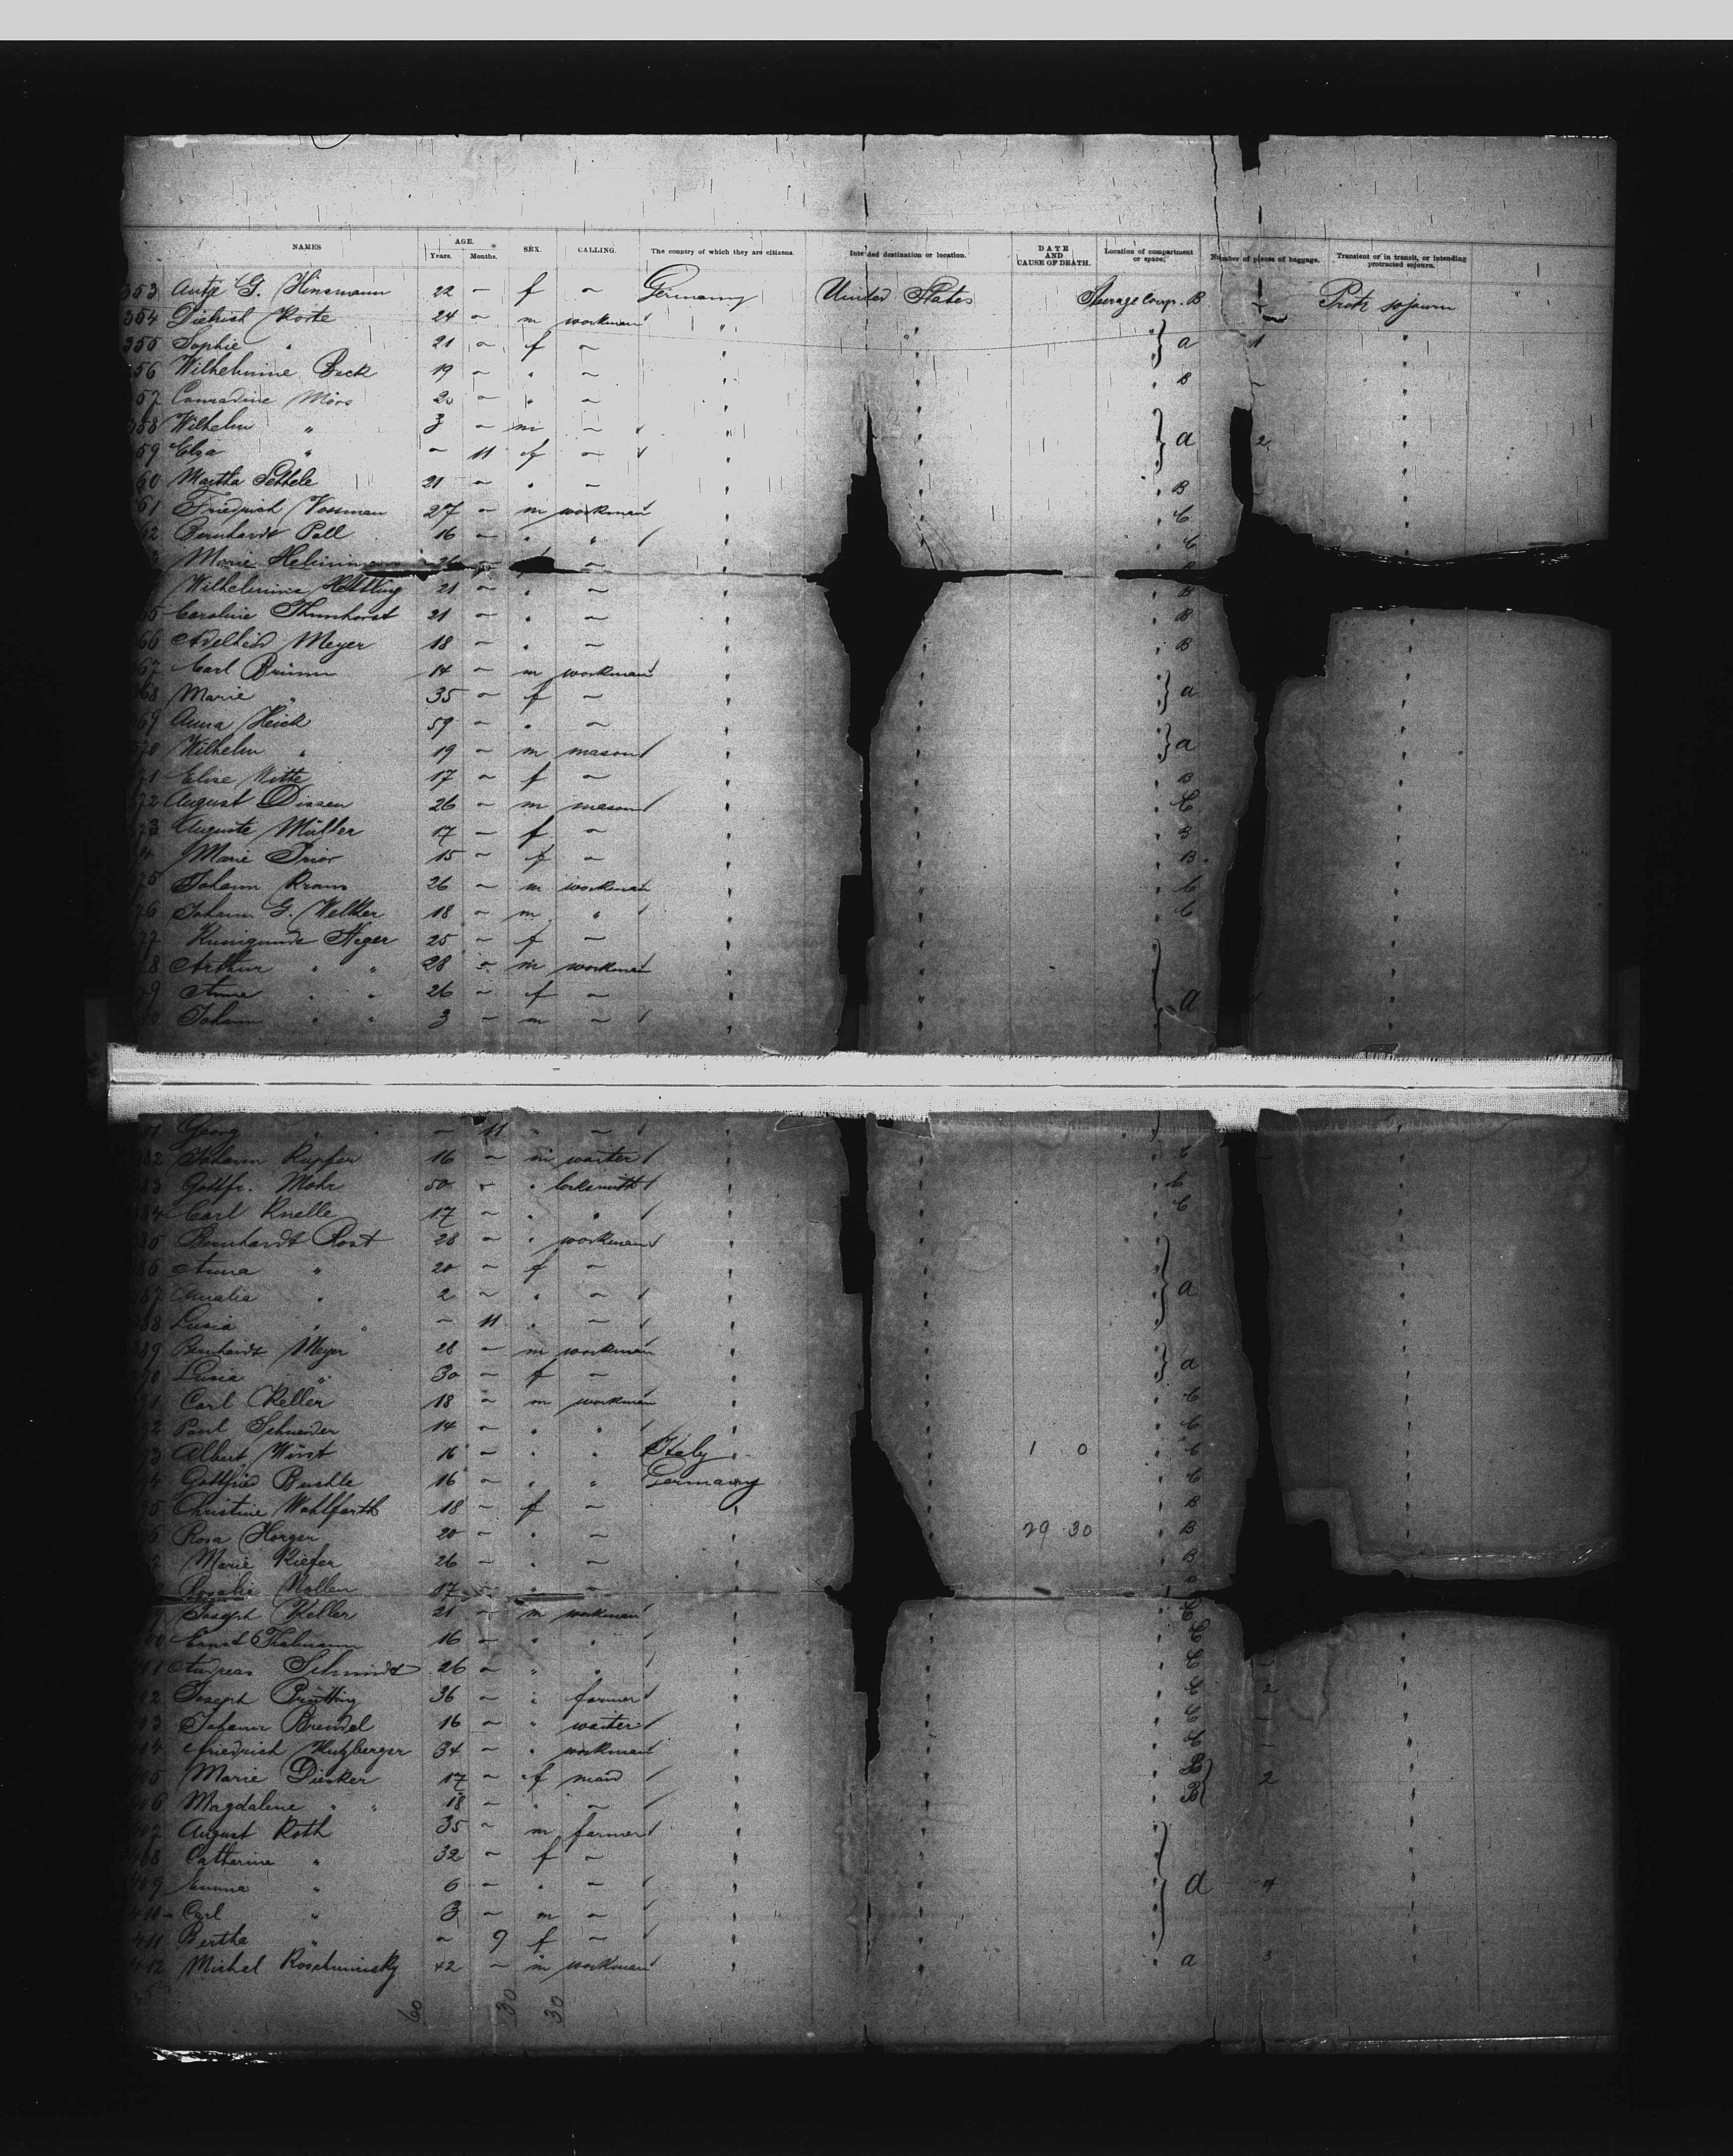 NAMES AGE. Years. Months. SEX. CALLING. The country of which they are citizens. Intended destination or location. DATE AND CAUSE OF DEATH. Location of compartment or space. Number of pieces of baggage. Transient or in transit, or intending protracted sojourn.
353 Antje G. Hinsmann 22 – f – Germany United States Steerage Comp. B – Protr sojourn
354 Diedrich Korte 24 – m workman " " "
355 Sophie " 21 – f – " " } a 1 "
56 Wilhelmine Beck 19 – " – " " " B – "
57 Conradine Mörs 20 – " – " " "
358 Wilhelm " 3 – m – " " "
59 Elsa " – 11 f – " " } a 2 "
60 Martha 21 – " – " " " B – "
61 Friedrich Vossman 27 – m workman " " " C
62 Bernhardt Poll 16 – " " " " " C
Marie 26 – –
Wilhelmine 21 – " – " " B
65 Caroline Thumhorst 21 – " – " " " B "
66 Adelheid Meyer 18 – " – " " " B "
67 Carl Brümm 14 – m workman " " "
68 Marie " 35 – f – " " } a "
69 Anna Heick 59 – " – " " "
370 Wilhelm " 19 – m mason " " } a "
71 Elise Witte 17 – f – " " " B "
72 August Dissen 26 – m mason " " " C "
73 Auguste Müller 17 – f – " " " B "
4 Marie Prior 15 – f – " " " B "
75 Johann Kraus 26 – m workman " " " C "
76 Johann G. Welker 18 – m " " " " C "
77 Kunigunde Heger 25 – f – " " "
8 Arthur " " 28 – m workman " " "
79 Anna " " 26 – f – " " } a 4 "
80 Johann " " 3 – m – " " "
81 Georg " " – 11 " – " " "
382 Johann Kupfer 16 – m waiter " " " C "
383 Gottfr. Mohr 50 – " locksmith " " " C "
384 Carl Knelle 17 – " " " " " C "
385 Bernhardt Post 28 – " workman " " "
386 Anna " 20 – f – " " "
387 Amalia " 2 – " – " " } a "
388 Lusia " " – 11 " – " " "
389 Bernhardt Meyer 28 – m workman " " "
90 Lusia " 30 – f – " " } a "
91 Carl Keller 18 – m workman " " " C "
92 Paul Schneider 14 – " " " " " C "
93 Albert Wüst 16 – " " Italy " 1 0 " C "
94 Gottfried 16 – " " Germany " " C "
95 Christine Wohlfarth 18 – f – " " " B "
96 Rosa Horger 20 – " – " " 29 30 " B "
97 Marie Kiefer 26 – " – " " " B "
Rosalie Nollen 17 – " – " B
99 Joseph Keller 21 – m workman " " " C "
400 Ernst Thalmann 16 – " " " " " C "
401 Andreas Schmidt 26 – " " " " " C – "
402 Joseph Brütting 36 – " farmer " " " C 2 "
403 Johann Brendel 16 – " waiter " " " C – "
404 Friedrich Hutzberger 34 – " workman " " " C – "
405 Marie Diesker 17 – f maid " " " B 2 "
406 Magdalene " " 18 – " – " " " B "
407 August Roth 35 – m farmer " " "
408 Catherine " 32 – f – " " "
409 Emma " 6 – " – " " } a 4 "
410 Carl " 3 – m – " " "
411 Bertha " – 9 f – " " "
412 Michel 42 – m workman " " " a 3 "
60 30 30